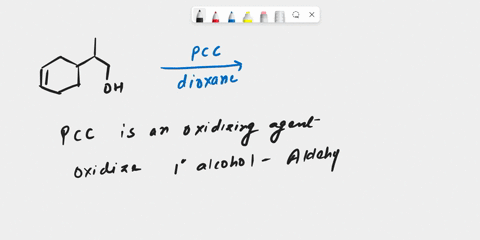 PCC
dioxane
OH
PCC is an oxidizing agent
oxidize 1° alcohol - Aldehy